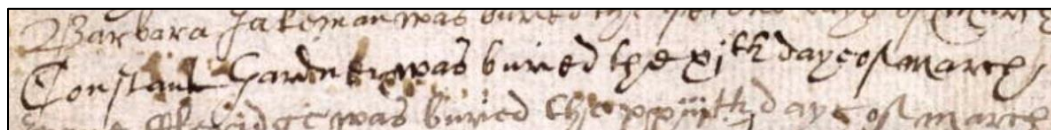 Barbara Jakeman was buried the second daye of March
Constant Gardner was buried the xjth daye of March
was buried the daye of March